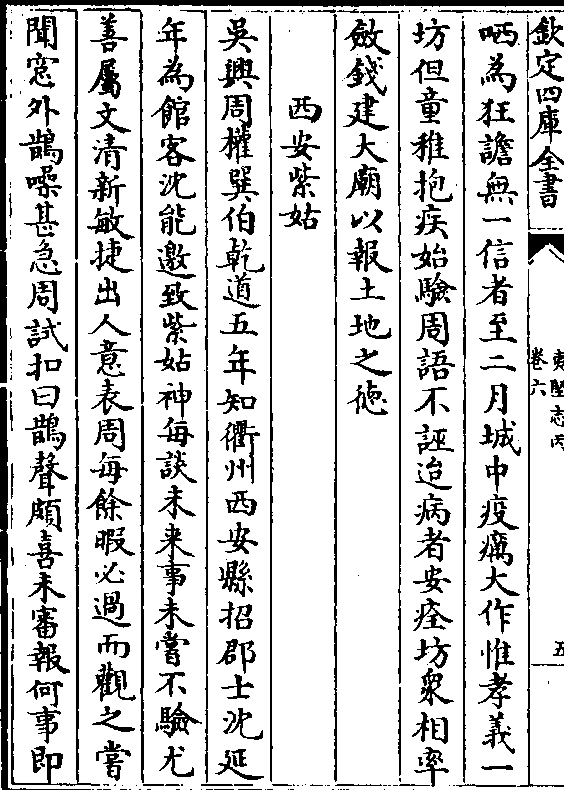 欽定四庫全書
夷堅志丙
卷六
五
哂為狂譫無一信者至二月城中疫癘大作惟孝義一
坊但童稚抱疾始驗周語不誣迨病者安痊坊衆相率
斂錢建大廟以報土地之徳
西安紫姑
吳興周權㢲伯乾道五年知衢州西安縣招郡士沈延
年為館客沈能邀致紫姑神每談未来事未嘗不驗尤
善屬文清新敏捷出人意表周每餘暇必過而觀之嘗
聞窓外鵲噪甚急周試扣曰鵲聲頗喜未審報何事即